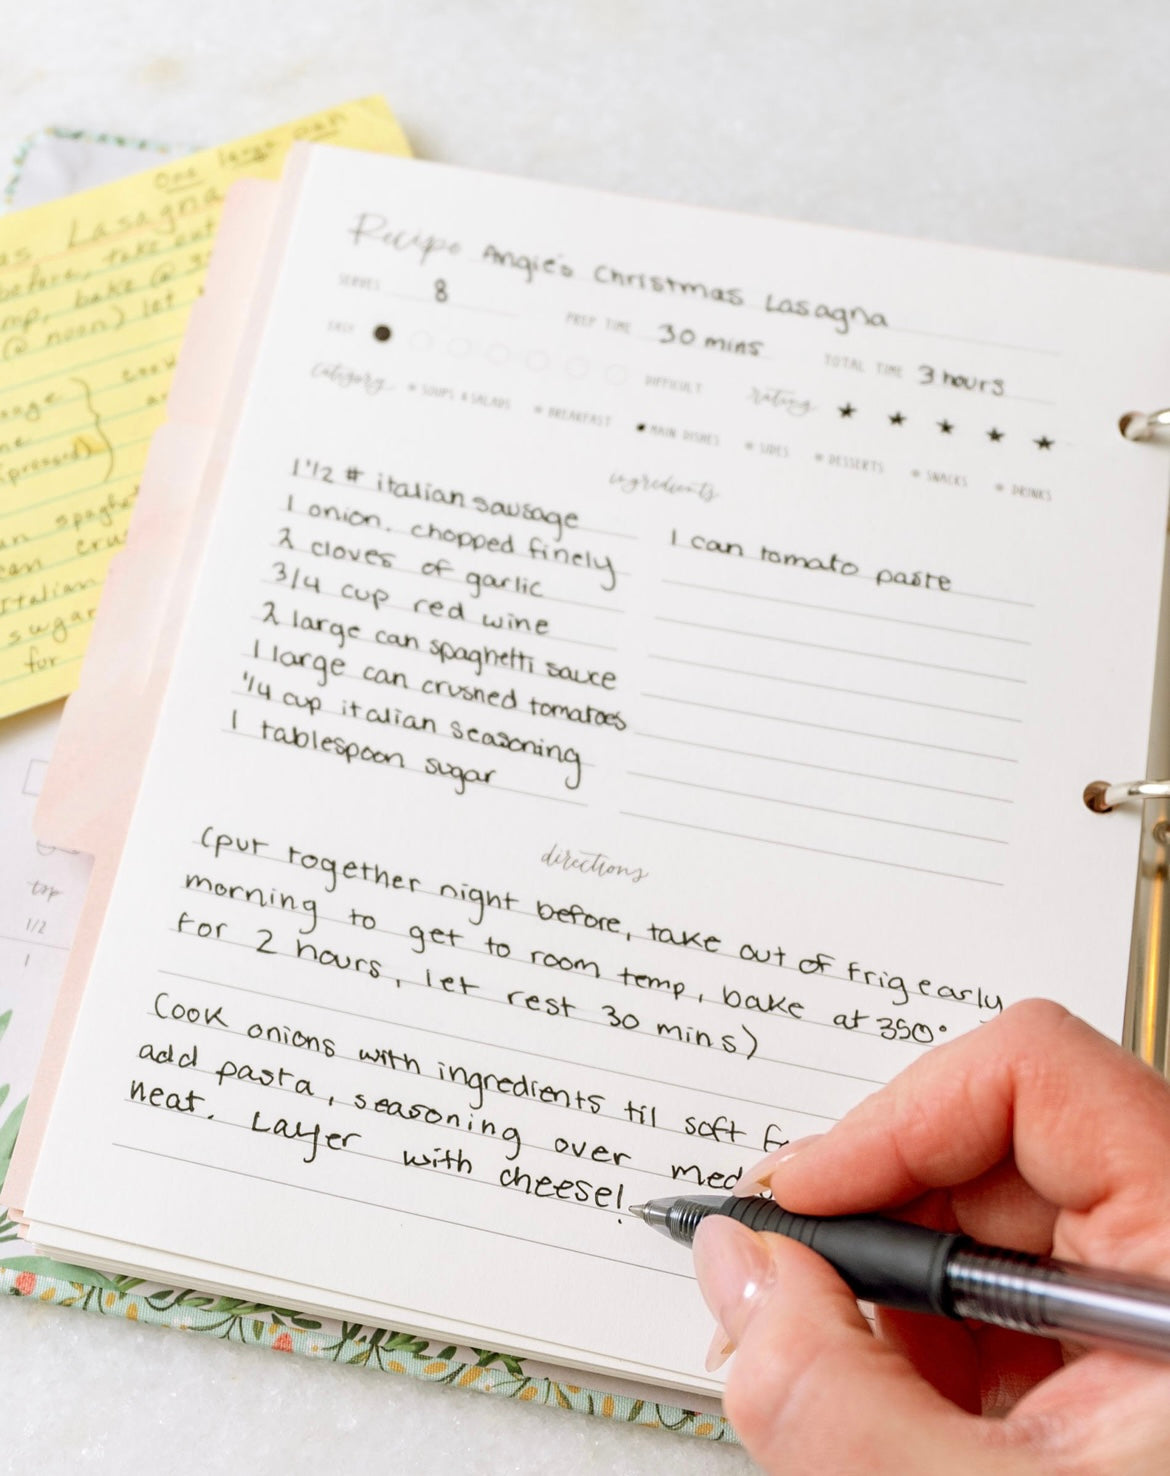 One large pan
as Lasagna
before, take out
mp, bake @ 3
@ noon) let
cook
sage
ne
(pressed)
an spaghet
can cru
Italian
sugar
for
top
1/2
1
Recipe Angie's Christmas Lasagna
SERVES 8 PREP TIME 30 mins TOTAL TIME 3 hours
EASY DIFFICULT rating ★ ★ ★ ★ ★
category SOUPS & SALADS BREAKFAST MAIN DISHES SIDES DESSERTS SNACKS DRINKS
ingredients
1 1/2 # italian sausage
1 onion, chopped finely
2 cloves of garlic
3/4 cup red wine
2 large can spaghetti sauce
1 large can crushed tomatoes
1/4 cup italian seasoning
1 tablespoon sugar
1 can tomato paste
directions
(put together night before, take out of frig early
morning to get to room temp, bake at 350°
for 2 hours, let rest 30 mins)
Cook onions with ingredients til soft
add pasta, seasoning over med
heat. Layer with cheese!